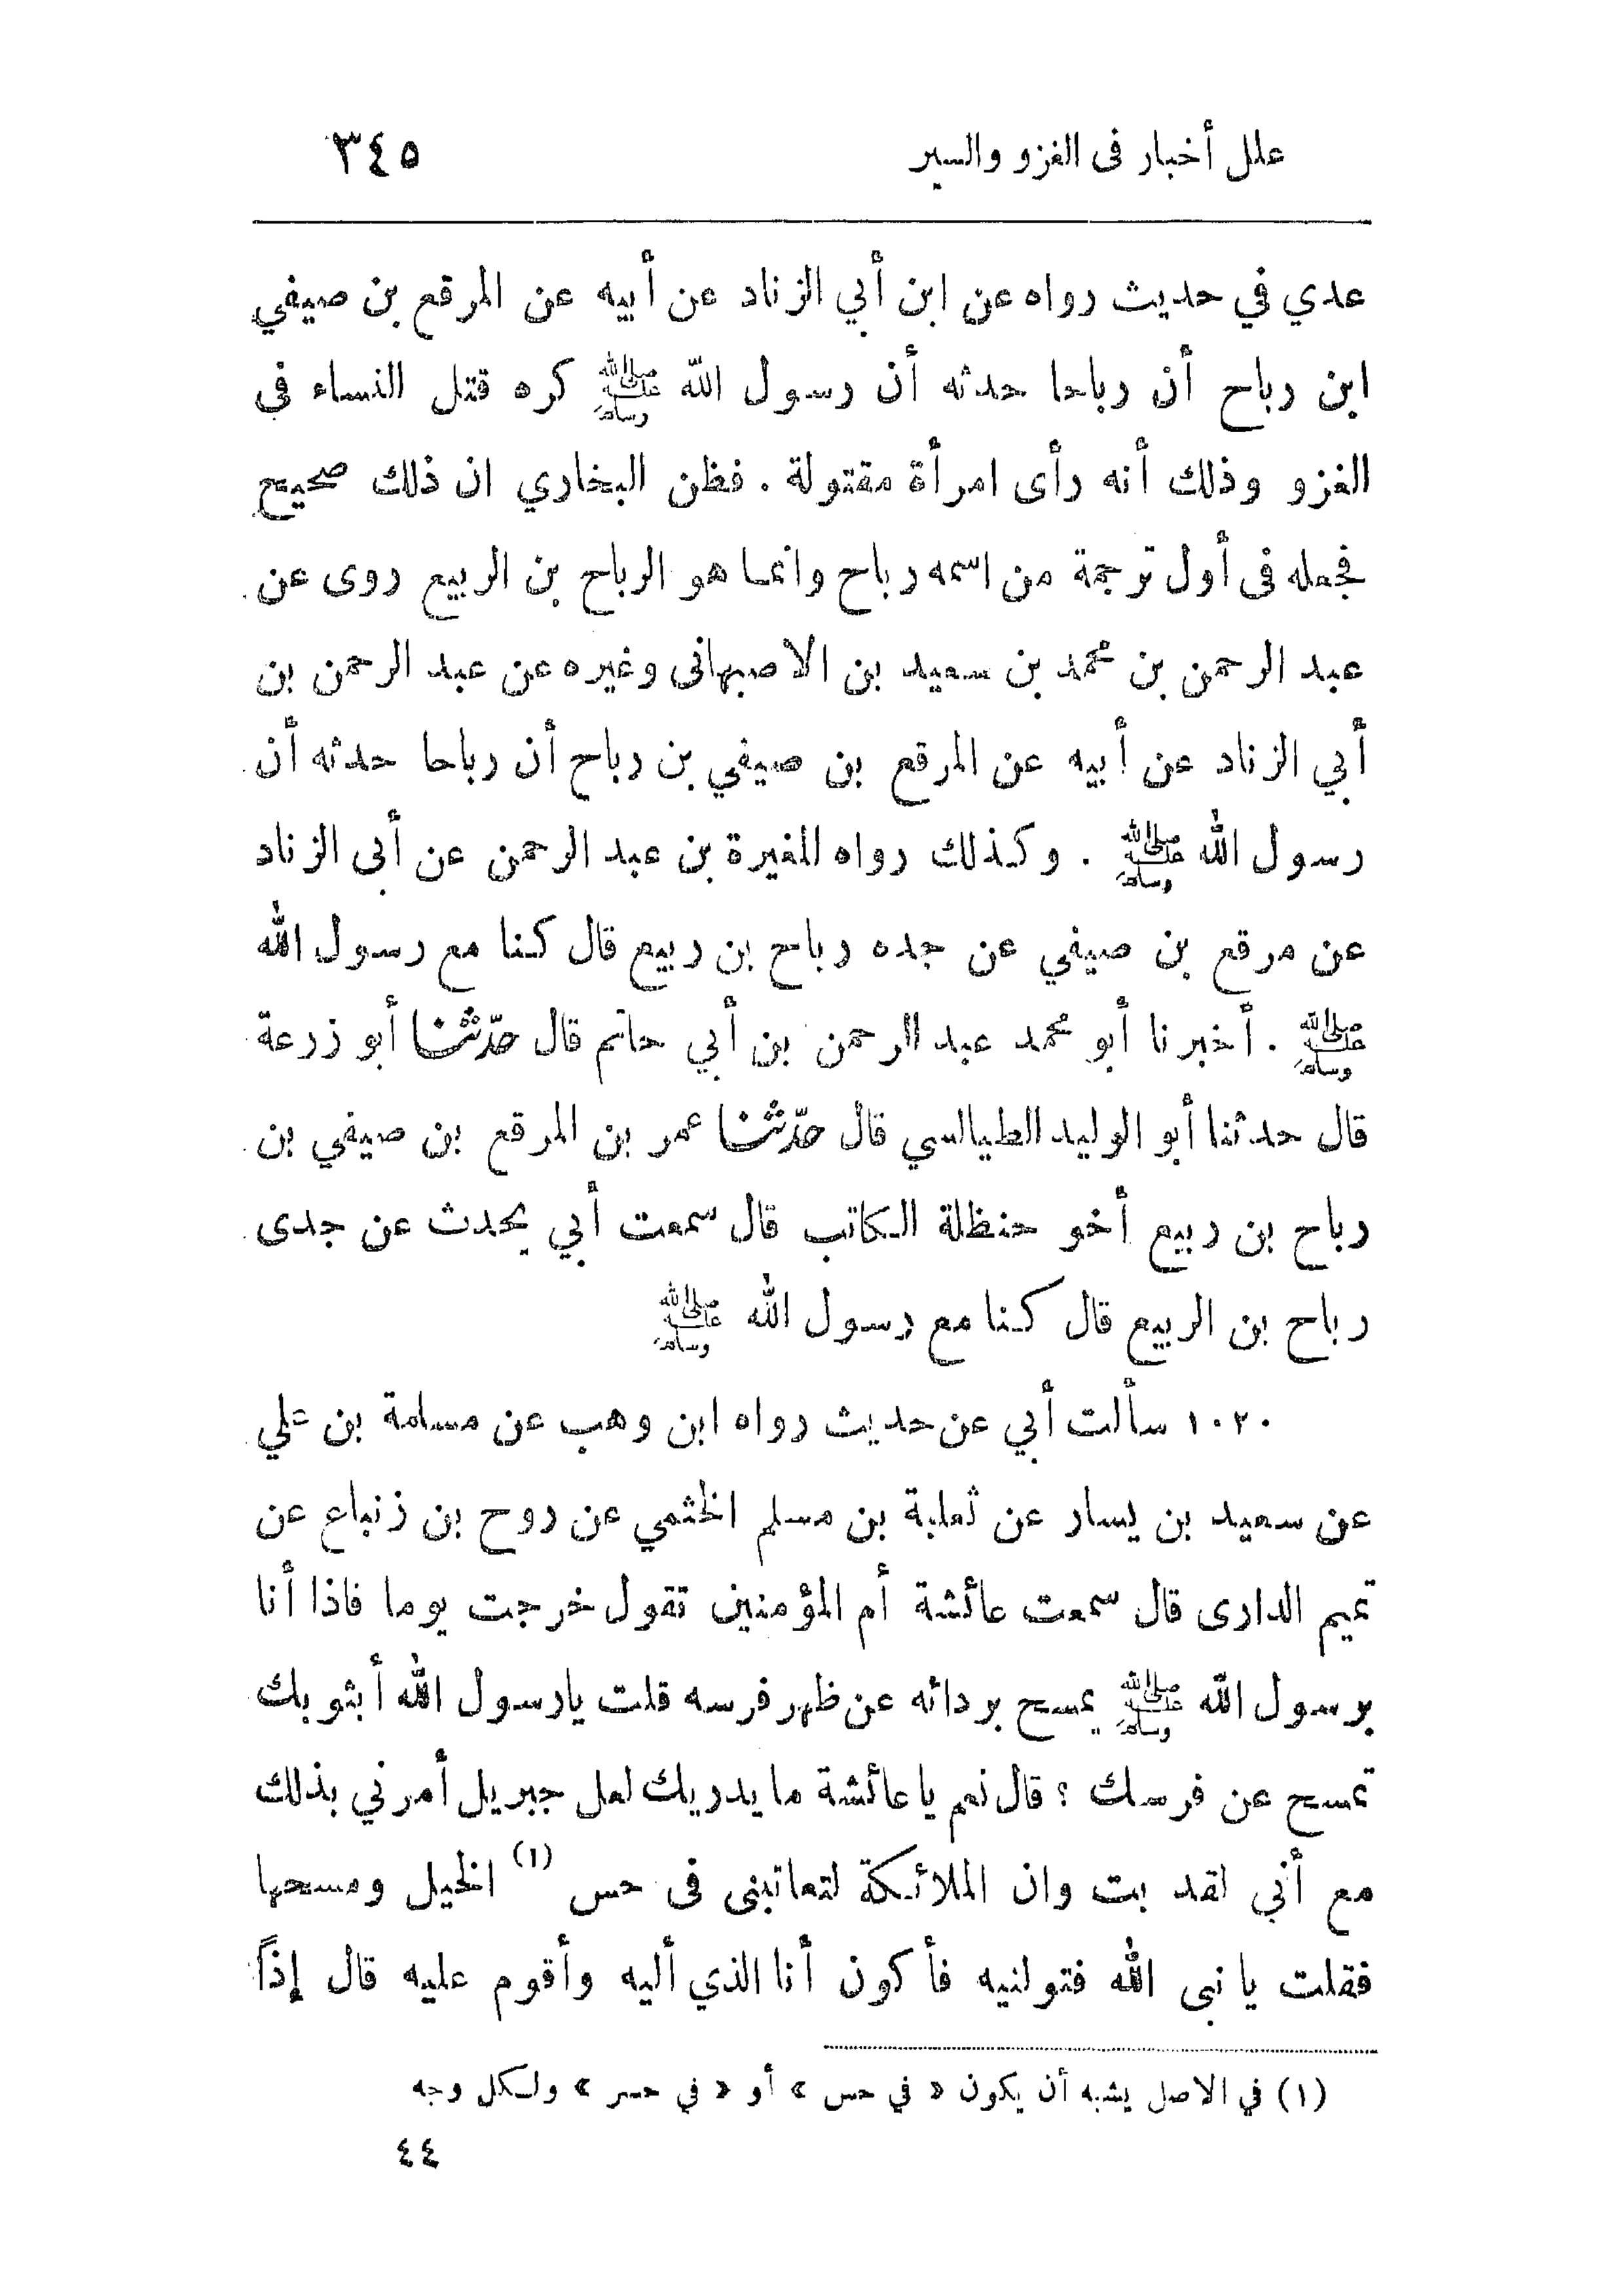 علل أخبار فى الغزو والسير ٣٤٥
عدي في حديث رواه عن ابن أبي الزناد عن أبيه عن المرقع بن صيفي
ابن رباح أن رباحا حدثه أن رسول الله ﷺ كره قتل النساء فى
الغزو وذلك أنه رأى امرأة مقتولة . فظن البخاري ان ذلك صحيح
فجعله فى أول ترجمة من اسمه رباح وانما هو الرباح بن الربيع روى عن
عبد الرحمن بن محمد بن سعيد بن الاصبهانى وغيره عن عبد الرحمن بن
أبي الزناد عن أبيه عن المرقع بن صيفي بن رباح أن رباحا حدثه أن
رسول الله ﷺ . وكذلك رواه المغيرة بن عبد الرحمن عن أبى الزناد
عن مرقع بن صيفي عن جده رباح بن ربيع قال كنا مع رسول الله
ﷺ . أخبرنا أبو محمد عبد الرحمن بن أبي حاتم قال حدّثنا أبو زرعة
قال حدثنا أبو الوليد الطيالسي قال حدّثنا عمر بن المرقع بن صيفي بن
رباح بن ربيع أخو حنظلة الكاتب قال سمعت أبي يحدث عن جدى
رباح بن الربيع قال كنا مع رسول الله ﷺ
١٠٢٠ سألت أبي عن حديث رواه ابن وهب عن مسلمة بن علي
عن سعيد بن يسار عن ثعلبة بن مسلم الخثمي عن روح بن زنباع عن
تميم الدارى قال سمعت عائشة أم المؤمنين تقول خرجت يوما فاذا أنا
برسول الله ﷺ يمسح بردائه عن ظهر فرسه قلت يارسول الله أبثوبك
تمسح عن فرسك ؟ قال نعم يا عائشة ما يدريك لعل جبريل أمرني بذلك
مع أني لقد بت وان الملائكة لتعاتبنى فى حس (١) الخيل ومسحها
فقلت يا نبى الله فتولنيه فأكون أنا الذي أليه وأقوم عليه قال إذاً
(١) في الاصل يشبه أن يكون « في حس » أو « في حسر » ولكل وجه
٤٤